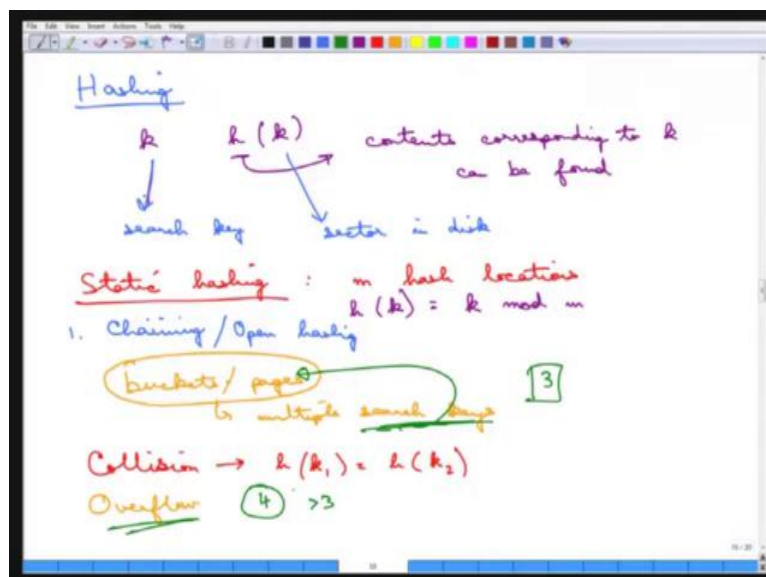 File Edit View Insert Actions Tools Help
Hashing
k h (k) contents corresponding to k
can be found
search key sector in disk
Static hashing : m hash locations
h (k) = k mod m
1. Chaining / Open hashig
buckets / pages 3
↳ multiple search keys
Collision → h (k₁) = h (k₂)
Overflow 4 >3